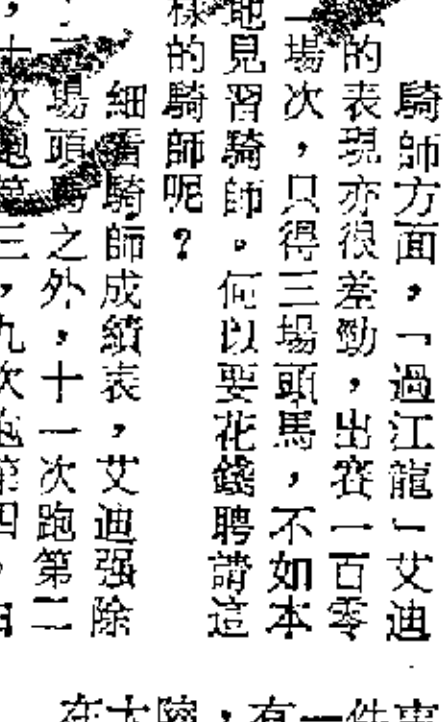 騎師方面，「過江龍」艾迪
的表現亦很差勁，出賽一百零
場次，只得三場頭馬，不如本
地見習騎師。何以要花錢聘請這
樣的騎師呢？
細看騎師成績表，艾迪强除
場頭馬之外，十一次跑第二
，十次跑第三，九次跑第四，
在大陸，有一件